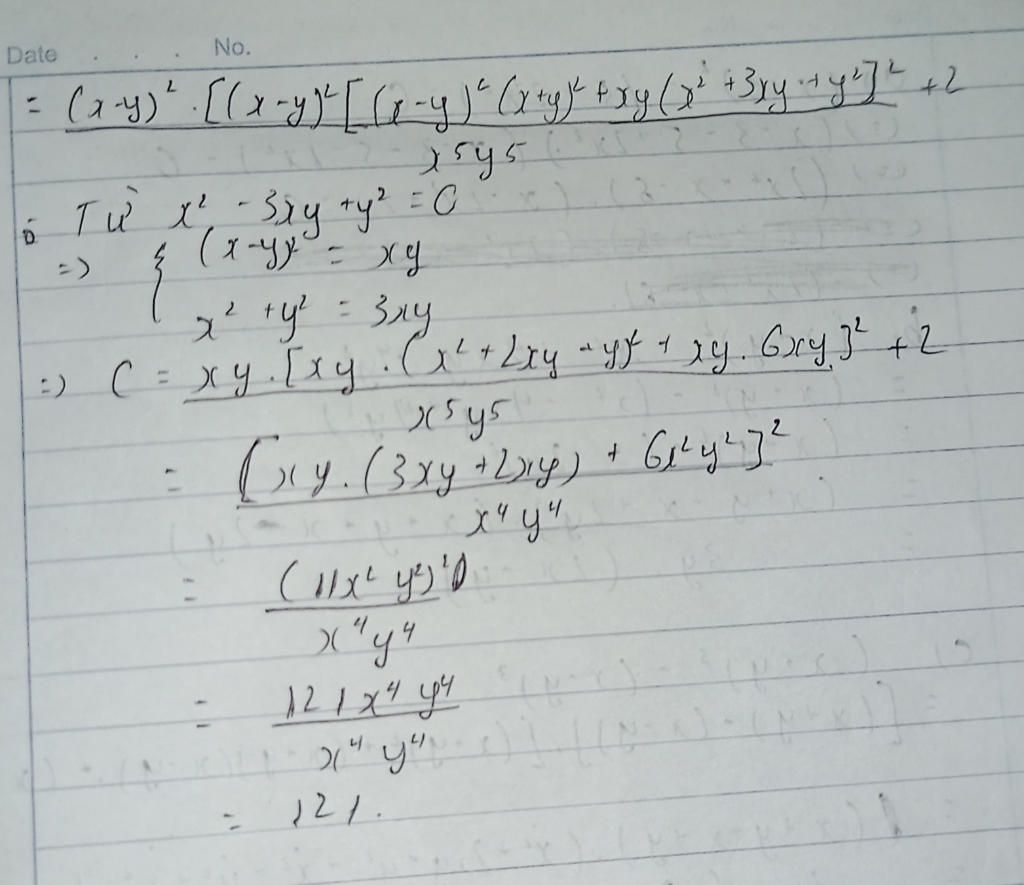 Date . . . No.
= (x-y)² . [(x-y)² [(x-y)² (x+y)² + xy (x² + 3xy + y²]² + 2
x⁵y⁵
Từ x² - 3xy + y² = 0
=> { (x-y)² = xy
x² + y² = 3xy
=> C = xy . [xy . (x² + 2xy - y)² + xy . 6xy]² + 2
x⁵y⁵
= [xy . (3xy + 2xy) + 6x²y²]²
x⁴y⁴
= (11x² y²)²
x⁴y⁴
= 121x⁴y⁴
x⁴y⁴
= 121.